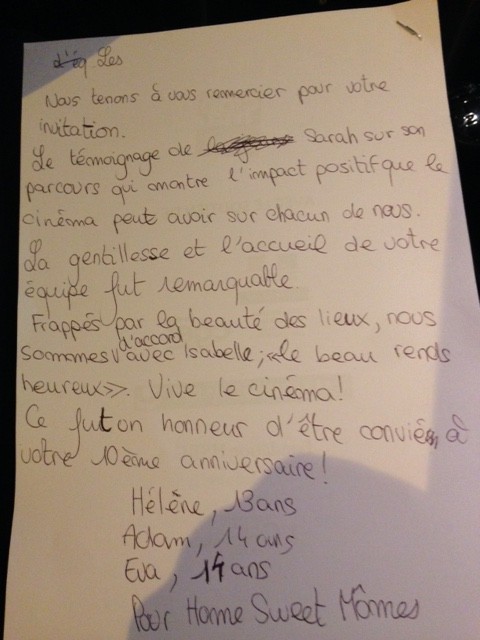 d'éq Les
Nous tenons à vous remercier pour votre
invitation.
Le témoignage de Sarah sur son
parcours qui montre l'impact positif que le
cinéma peut avoir sur chacun de nous.
La gentillesse et l'accueil de votre
équipe fut remarquable.
Frappés par la beauté des lieux, nous
sommes d'accord avec Isabelle ; «le beau rends
heureux». Vive le cinéma !
Ce fut on honneur d'être conviés, à
votre 10ème anniversaire !
Hélène, 13 ans
Adam, 14 ans
Eva, 14 ans
Pour Home Sweet Mômes